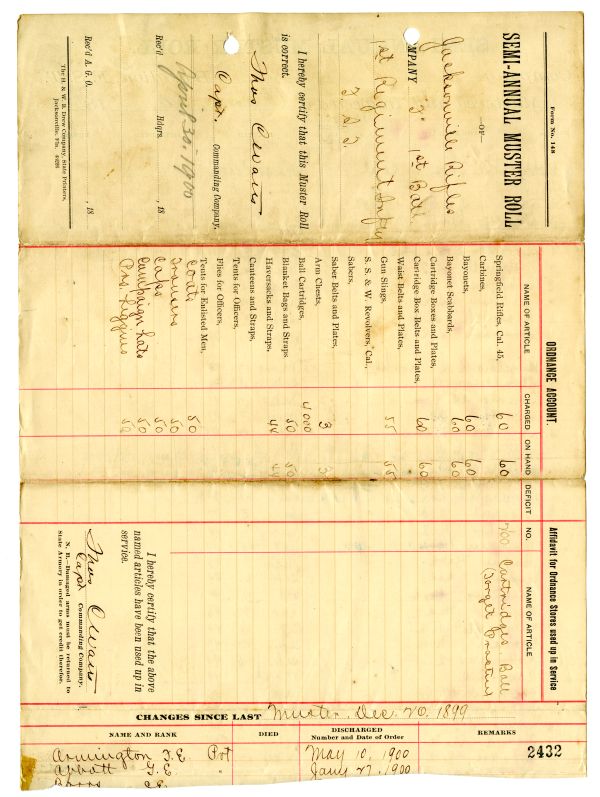 Form No. 148
SEMI-ANNUAL MUSTER ROLL
—OF—
Jacksonville Rifles
COMPANY "F" 1st Batt
1st Regiment Infty
F. S. T.
I hereby certify that this Muster Roll
is correct.
Thos
Capt. Commanding Company,
Rec'd Hdqrs. , 18
April 30-1900
Rec'd A. G. O. , 18
The H. & W. B. Drew Company, State Printers,
Jacksonville, Fla.
ORDNANCE ACCOUNT.
NAME OF ARTICLE CHARGED ON HAND DEFICIT
Springfield Rifles, Cal. 45, 60 60
Carbines,
Bayonets, 60 60
Bayonet Scabbards, 60 60
Cartridge Boxes and Plates,
Cartridge Box Belts and Plates, 60 60
Waist Belts and Plates,
Gun Slings, 55 55
S. & W. Revolvers, Cal.,
Sabers,
Saber Belts and Plates,
Arm Chests, 3 3
Ball Cartridges, 4000
Blanket Bags and Straps 50 50
Haversacks and Straps, 44 44
Canteens and Straps,
Tents for Officers,
Flies for Officers,
Tents for Enlisted Men,
Coats 50
Trousers 50
Caps 50
Campaign hats 50
Prs. Leggins 50
Affidavit for Ordnance Stores used up in Service
NO. NAME OF ARTICLE
700 Cartridges Ball
(Target Practice
I hereby certify that the above
named articles have been used up in
service.
Thos
Capt Commanding Company.
N. B.—Damaged arms must be returned to
State Armory in order to get credit therefor.
CHANGES SINCE LAST Muster. Dec. 20. 1899
NAME AND RANK DIED DISCHARGED Number and Date of Order REMARKS
2432
Armington F. E. Pvt May 10, 1900
Abbott G. E Jany 27, 1900